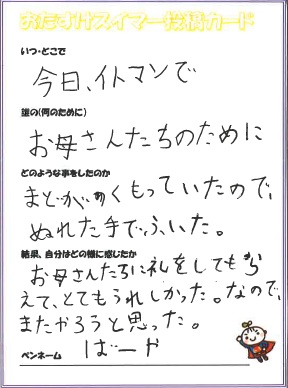 おたすけスイマー投稿カード
いつ・どこで
今日、イトマンで
誰の(何のために)
お母さんたちのために
どのような事をしたのか
まどがくもっていたので、
ぬれた手でふいた。
結果、自分はどの様に感じたか
お母さんたちに礼をしてもら
えて、とてもうれしかった。なので、
またやろうと思った。
ペンネーム
ばーや